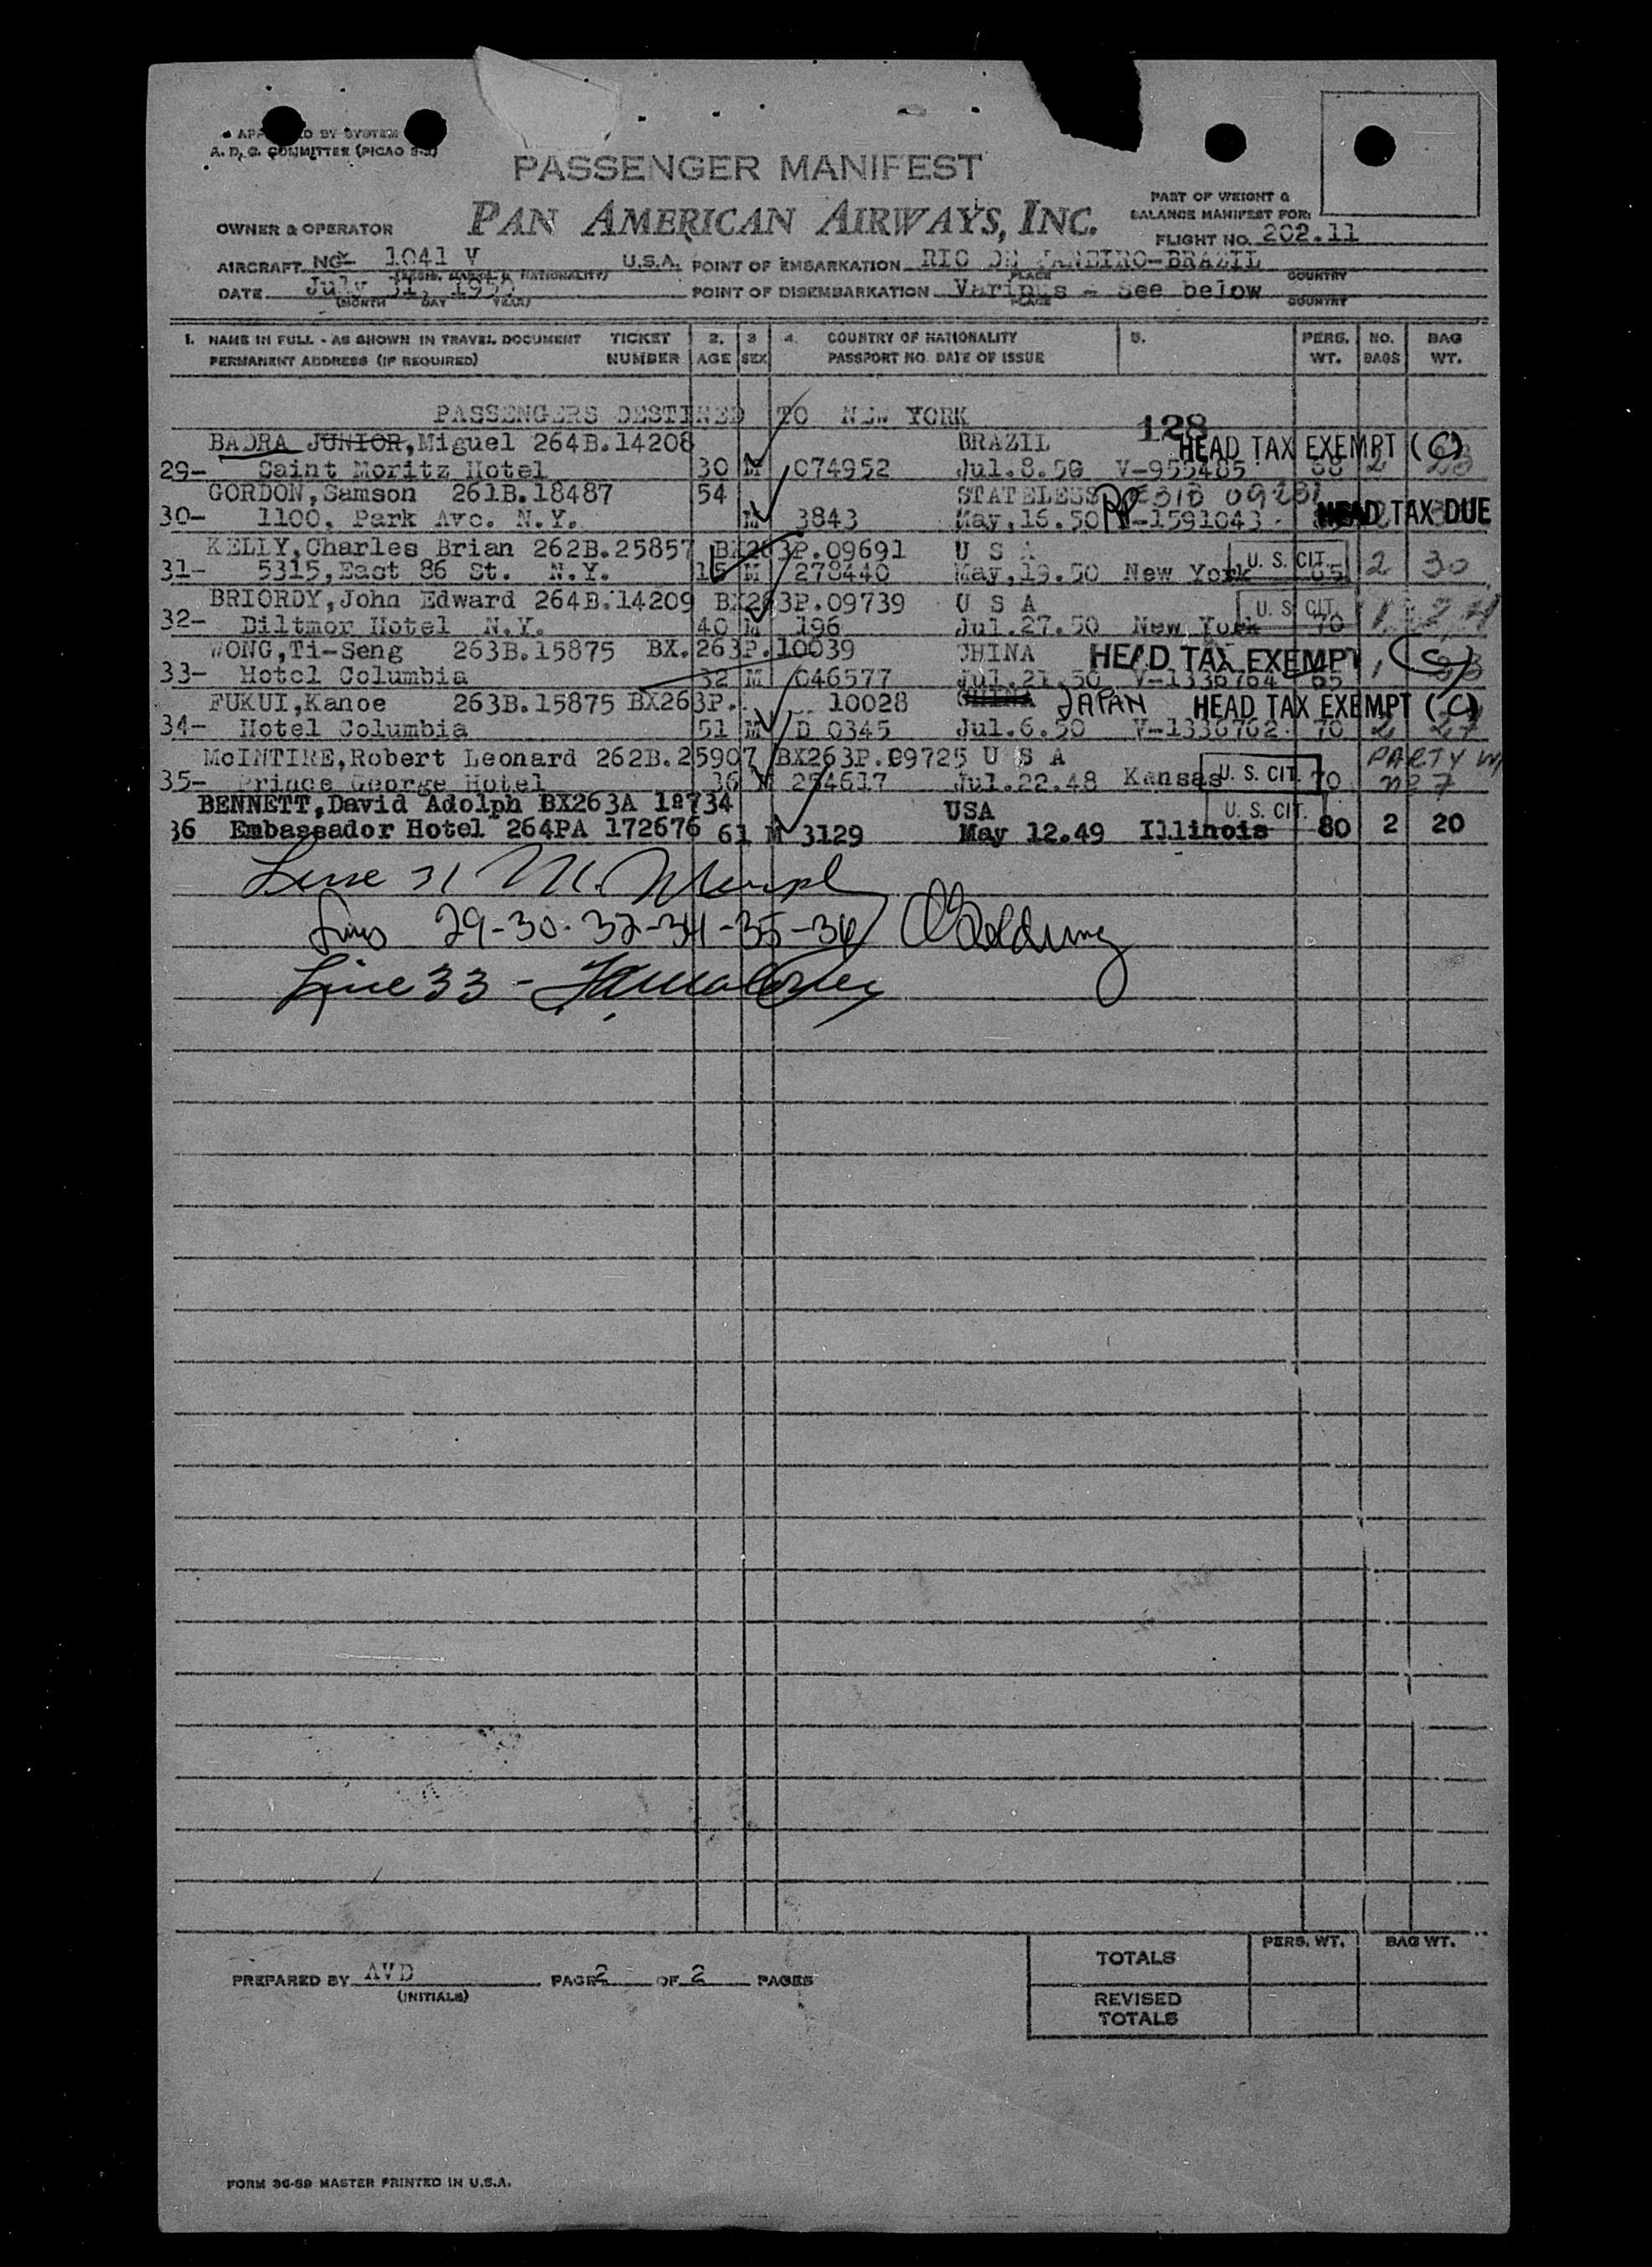 A. D. G. COMMITTEE (PICAO
PASSENGER MANIFEST
OWNER & OPERATOR PAN AMERICAN AIRWAYS, INC.
PART OF WEIGHT &
BALANCE MANIFEST FOR:
FLIGHT NO. 202.11
AIRCRAFT NC- 1041 V U.S.A. POINT OF EMBARKATION RIO DE JANEIRO-BRAZIL
PLACE COUNTRY
DATE July 31, 1950 POINT OF DISEMBARKATION Various - See below
(MONTH DAY YEAR) PLACE COUNTRY
1. NAME IN FULL - AS SHOWN IN TRAVEL DOCUMENT TICKET 2. 3 4. COUNTRY OF NATIONALITY 5. PERS. NO. BAG
PERMANENT ADDRESS (IF REQUIRED) NUMBER AGE SEX PASSPORT NO. DATE OF ISSUE WT. BAGS WT.
PASSENGERS DESTINED TO NEW YORK 128
BADRA JUNIOR, Miguel 264B.14208 BRAZIL HEAD TAX EXEMPT (C)
29- Saint Moritz Hotel 30 M C74952 Jul.8.50 V-955485 2
GORDON, Samson 261B.18487 54 STATELESS
30- 1100, Park Ave. N.Y. M 3843 May,16.50 RP V-1591043 HEAD TAX DUE
KELLY, Charles Brian 262B.25857 BX263P.09691 U S A U. S. CIT.
31- 5315, East 86 St. N.Y. 15 M 278440 May,19.50 New York 65 2 30
BRIORDY, John Edward 264B.14209 BX263P.09739 U S A U. S. CIT.
32- Biltmor Hotel N.Y. 40 M 196 Jul.27.50 New York 70
WONG, Ti-Seng 263B.15875 BX.263P.10039 CHINA HEAD TAX EXEMPT (C)
33- Hotel Columbia 32 M 046577 Jul.21.50 V-1336764 65 1
FUKUI, Kanoe 263B.15875 BX263P. 10028 CHINA JAPAN HEAD TAX EXEMPT (C)
34- Hotel Columbia 51 M D 0345 Jul.6.50 V-1336762 70 2 27
McINTIRE, Robert Leonard 262B.25907 BX263P.09725 U S A U. S. CIT. PARTY W/
35- Prince George Hotel 36 M 254617 Jul.22.48 Kansas 70 No 7
BENNETT, David Adolph BX263A 18734 USA U. S. CIT.
36 Embassador Hotel 264PA 172676 61 M 3129 May 12.49 Illinois 80 2 20
Line 31 M.
Lines 29-30-32-34-35-36 Golding
Line 33 -
TOTALS PERS. WT. BAG WT.
PREPARED BY AVD PAGE 2 OF 2 PAGES
(INITIALS)
REVISED
TOTALS
FORM 36-59 MASTER PRINTED IN U.S.A.